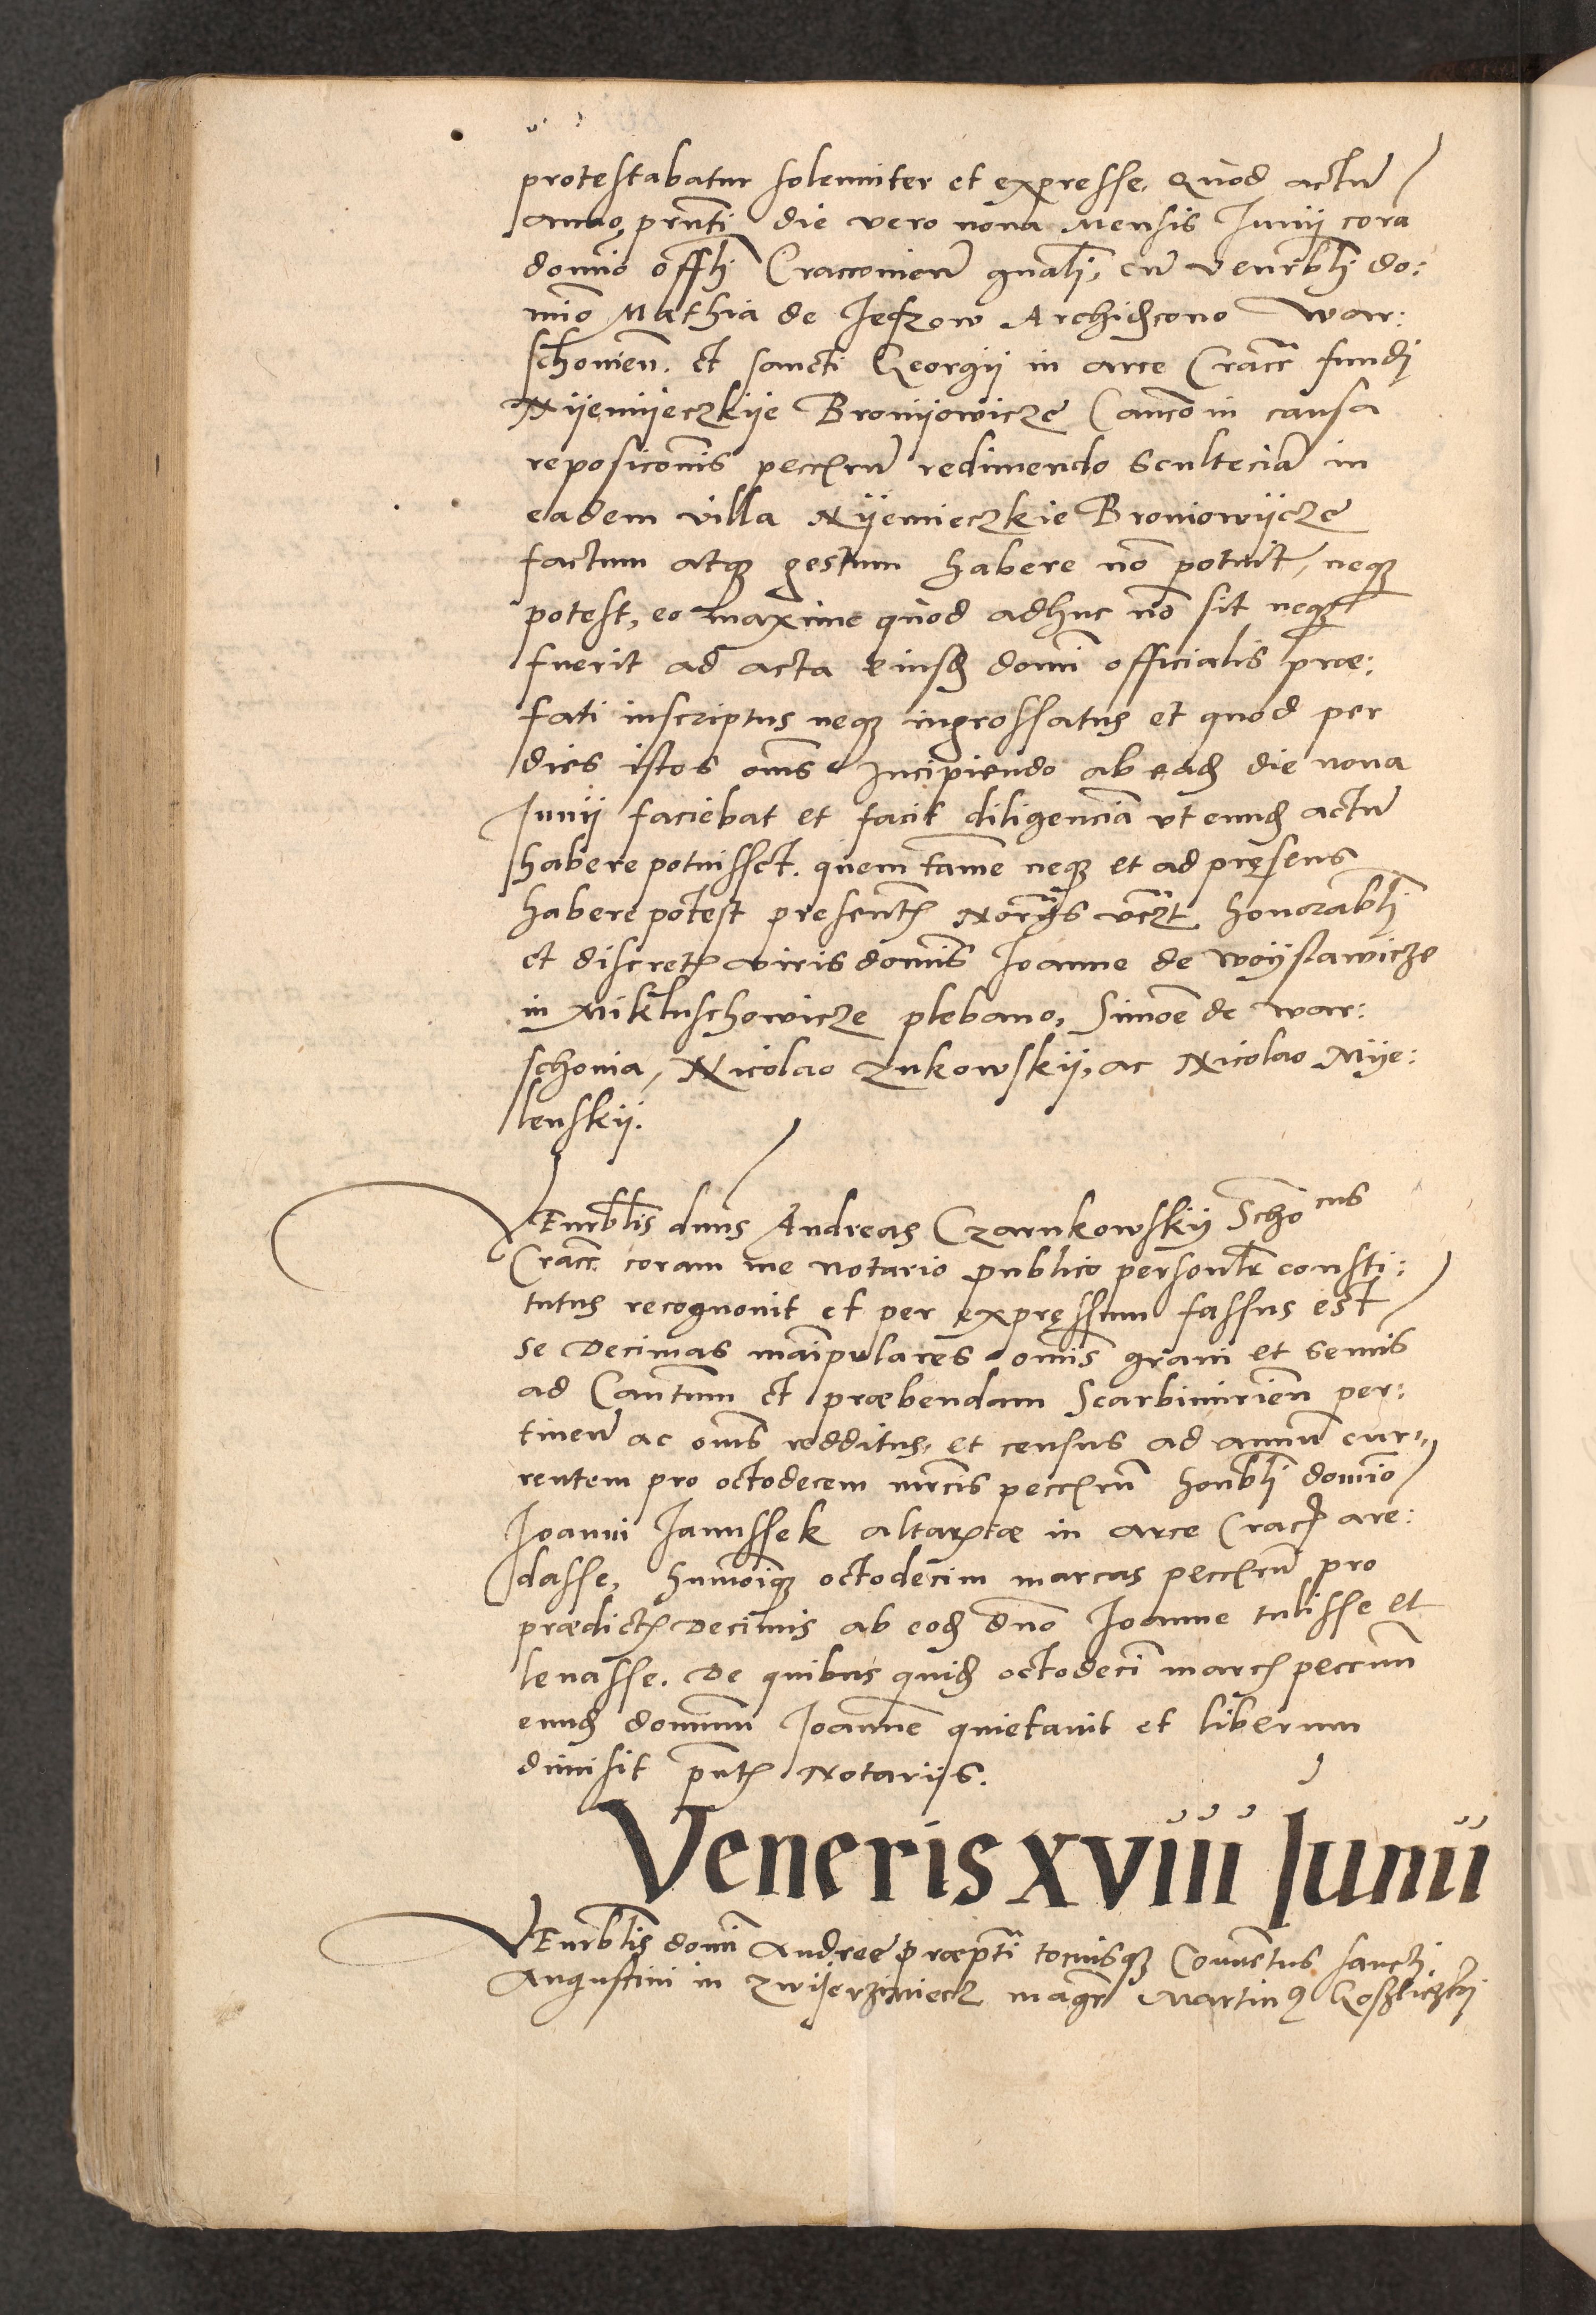 protestabatur solenniter et expresse, Quod actū
anno prn̄ti die vero nona Mensis Junij corā
domīo offli Cracovien̄ gnali, cū venrbli do:
mīo Mathia de Jeszow Archidcono War:
schovien. et sancti Georgij in arce Cracc fundi
Nijemijeczkije Bronijowicze Canco in causa
reposiconis pecciarū redimendo scultecia in
eadem villa Nijemieczkie Broniowijcze
factum atq gestum habere nō potuit, neq
potest, eo maxime quod adhuc nō sit neq
fuerit ad acta eiusd domī officialis præ:
fati inscriptus neq ingrossatus et quod per
dies istos oms Incipiendo ab ead die nona
Junij faciebat et facit diligenciā ut eund actū
habere potuisset. quem tamē neq et ad pręsens
habere potest presentt Norijs vczt honorabli
et discrett viris domīs Joanne de Woijslawicze
in Mikluschowicze plebano, Simōe de War:
schovia, Nicolao Zukowskij, ac Nicolao Mije:
lenskij.
VEnrblis dnns Andreas Czarnkowskij Scho cus
Cracc. coram me notario publico personlr consti:
tutus recognovit et per expręssum fassus est
se Decimas māipulares omīs grani et semīs
ad Cantum et præbendam Scarbimirien̄ per:
tinen̄ ac oms redditus, et census ad annū cur:
rentem pro octodecem mrcis pecciarū honbli domīo
Joanni Janussek altaristæ in arce Cracc are:
dasse, humōiq octodecim marcas pecciarū pro
prædictt Decimis ab eod dn̄o Joanne tulisse et
levasse. De quibus quid octodecī marcs peccnū
eund dominum Joannē quietavit et liberum
dimisit pn̄tt Notarijs.
Veneris xviii Junii
VEnrblis domī Andree præptī tociusq Conventus sancti
Augustini in Zwijerzijniecz magr Martin9 Koszliczkij